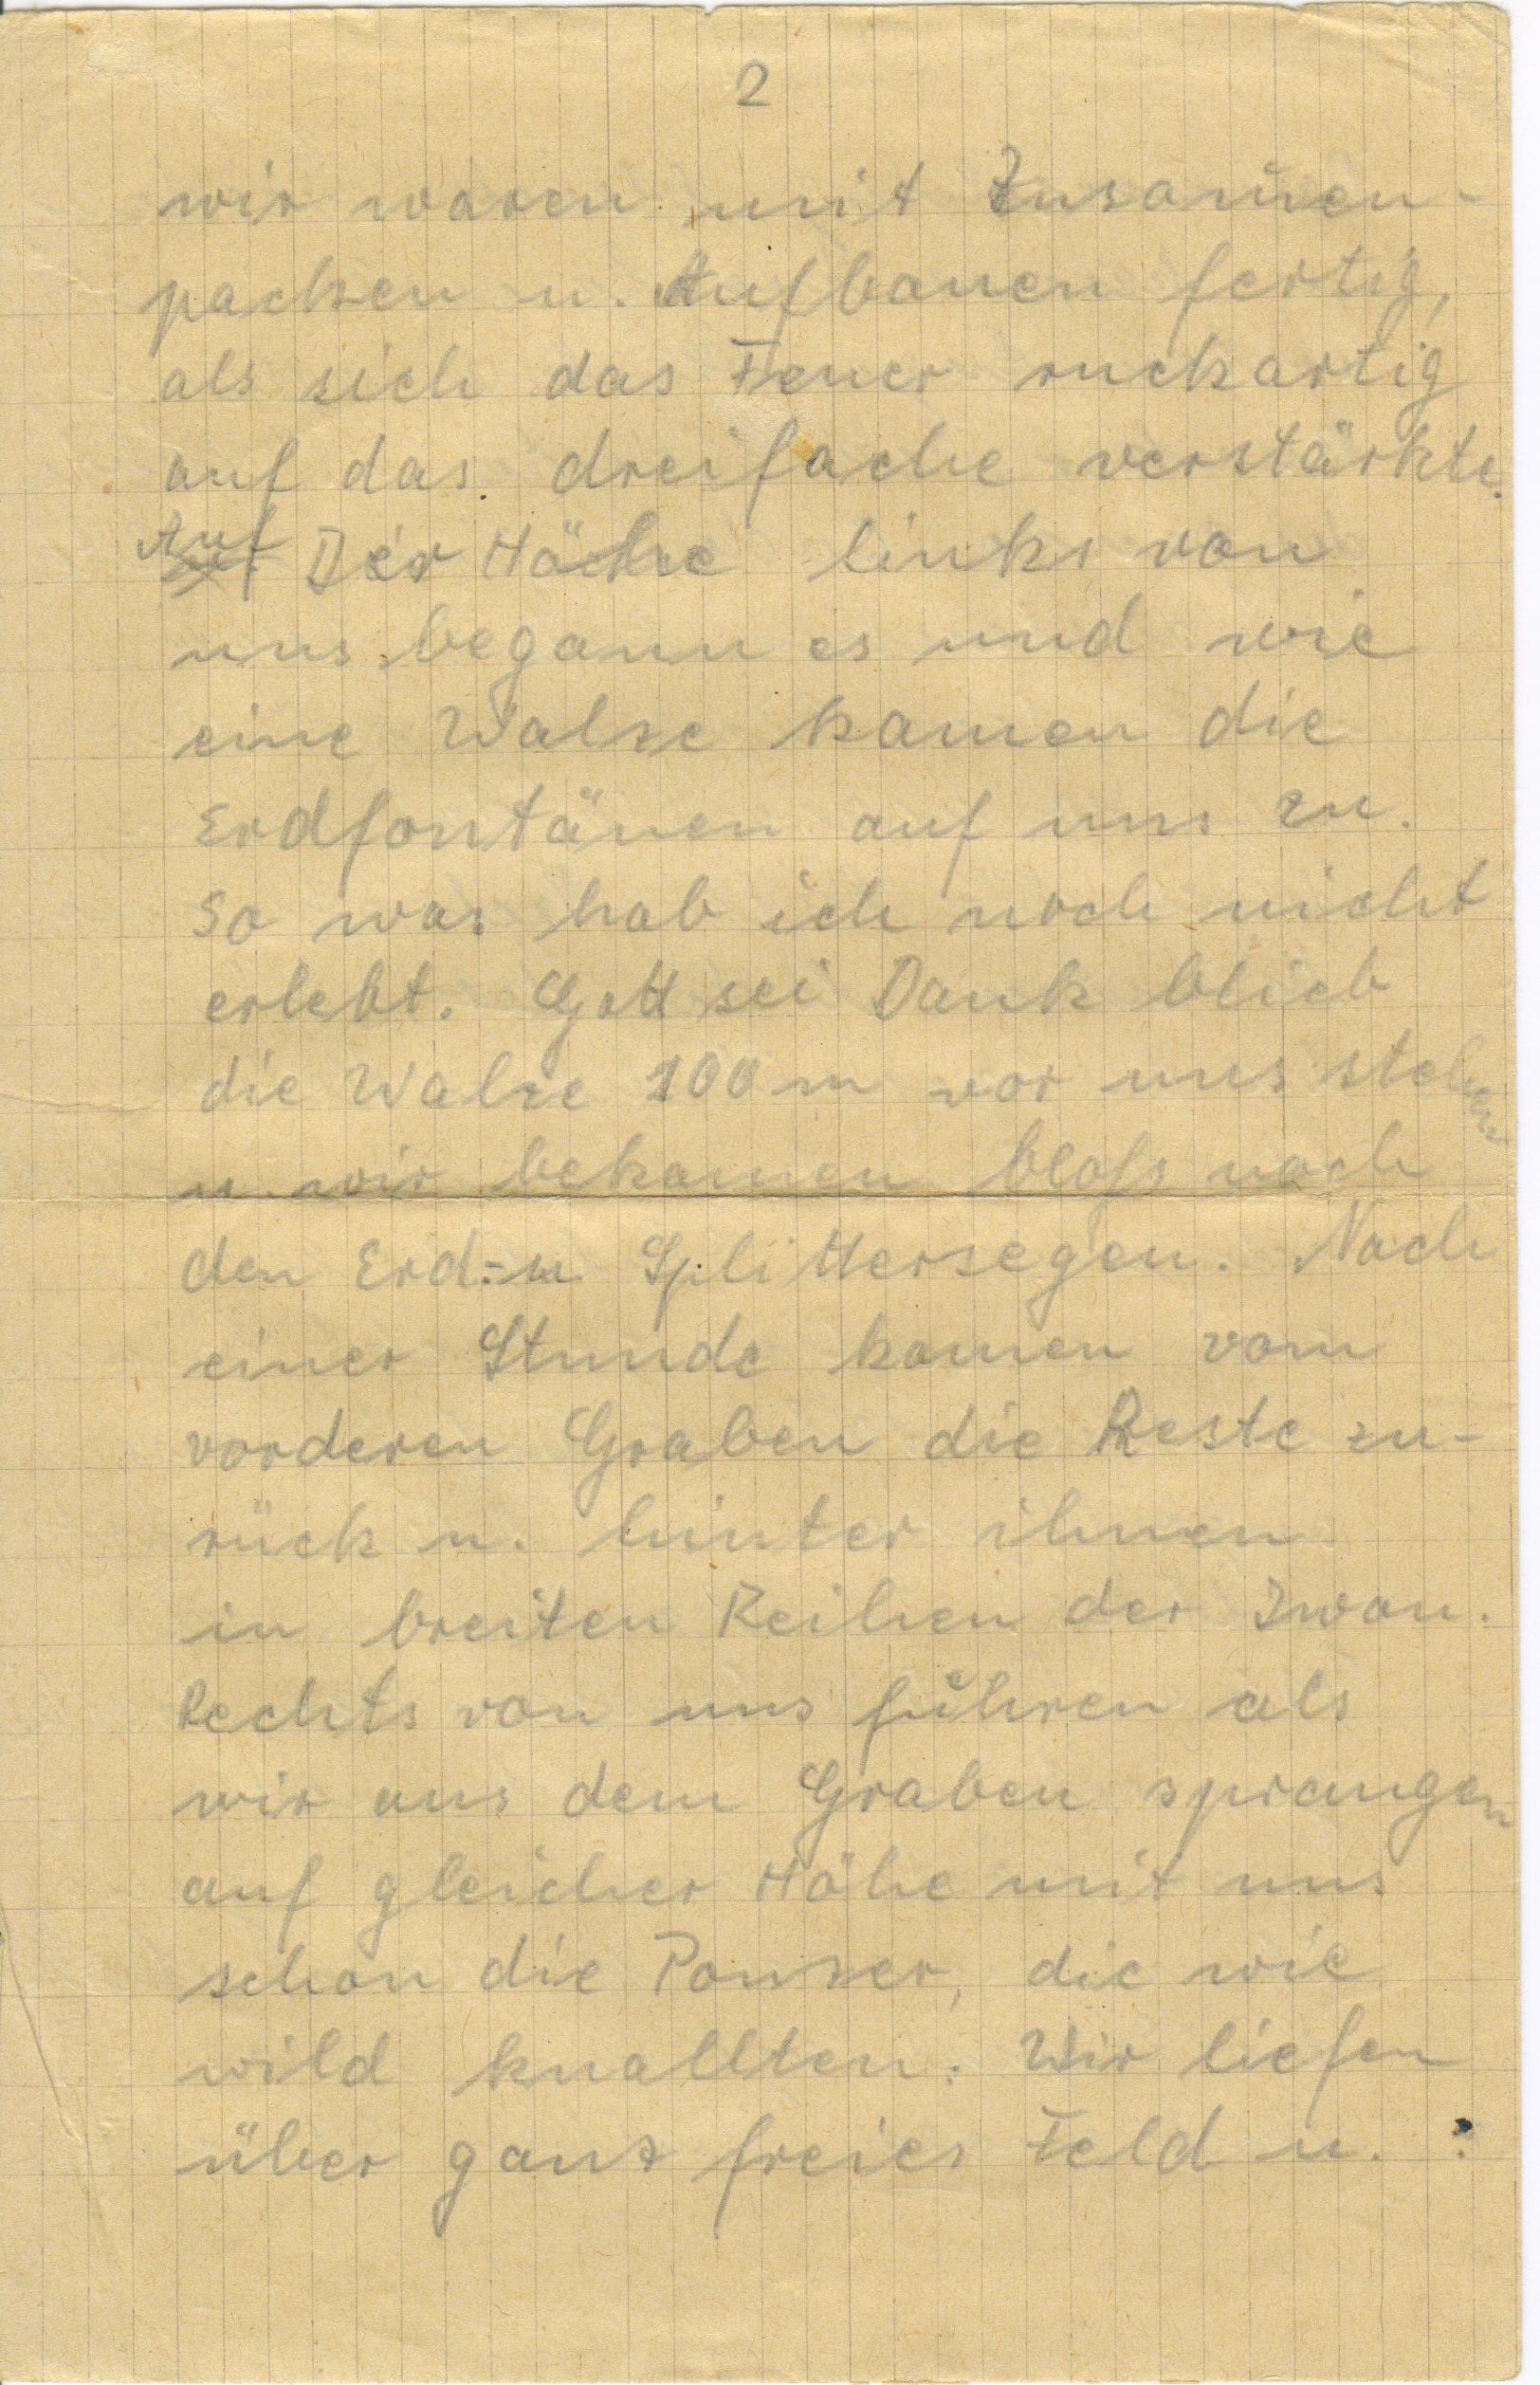 2
wir waren mit Zusam̄en-
packen u. Aufbauen fertig,
als sich das Feuer ruckartig
auf das dreifache verstärkte.
Auf Der Höhe links von
uns begann es und wie
eine Walze kamen die
Erdfontänen auf uns zu.
So was hab ich noch nicht
erlebt. Gott sei Dank blieb
die Walze 100 m vor uns stehen
u. wir bekamen bloss noch
den Erd- u Splittersegen. Nach
einer Stunde kamen vom
vorderen Graben die Reste zu-
rück u. hinter ihnen
in breiten Reihen der Iwan.
Rechts von uns führen als
wir aus dem Graben sprangen
auf gleicher Höhe mit uns
schon die Panzer, die wie
wild knallten. Wir liefen
über ganz freies Feld u.